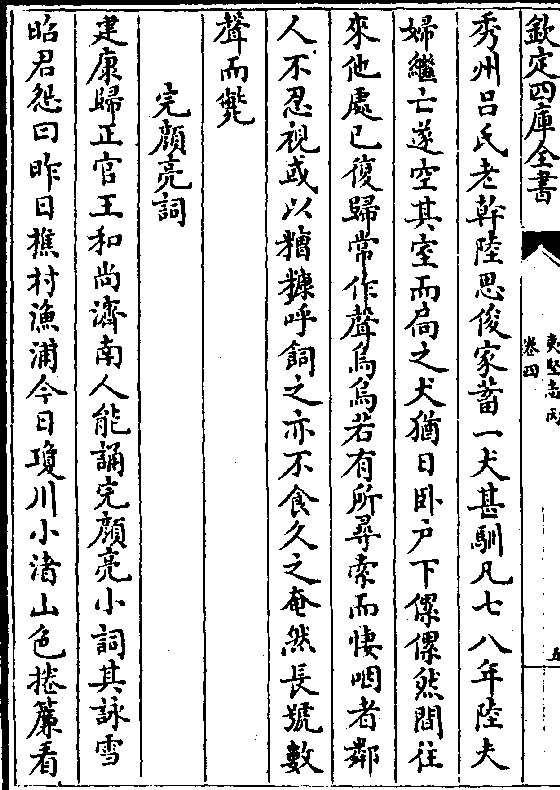 欽定四庫全書
夷堅志丙
卷四
五
秀州吕氏老幹陸思俊家蓄一犬甚馴凡七八年陸夫
婦繼亡遂空其室而扃之犬猶日卧户下傫傫然間往
來他處已復歸常作聲烏烏若有所尋索而悽咽者鄰
人不忍視或以糟糠呼飼之亦不食久之奄然長號數
聲而斃
完顔亮詞
建康歸正官王和尚濟南人能誦完顔亮小詞其詠雪
昭君怨曰昨日樵村漁浦今日瓊川小渚山色捲簾看